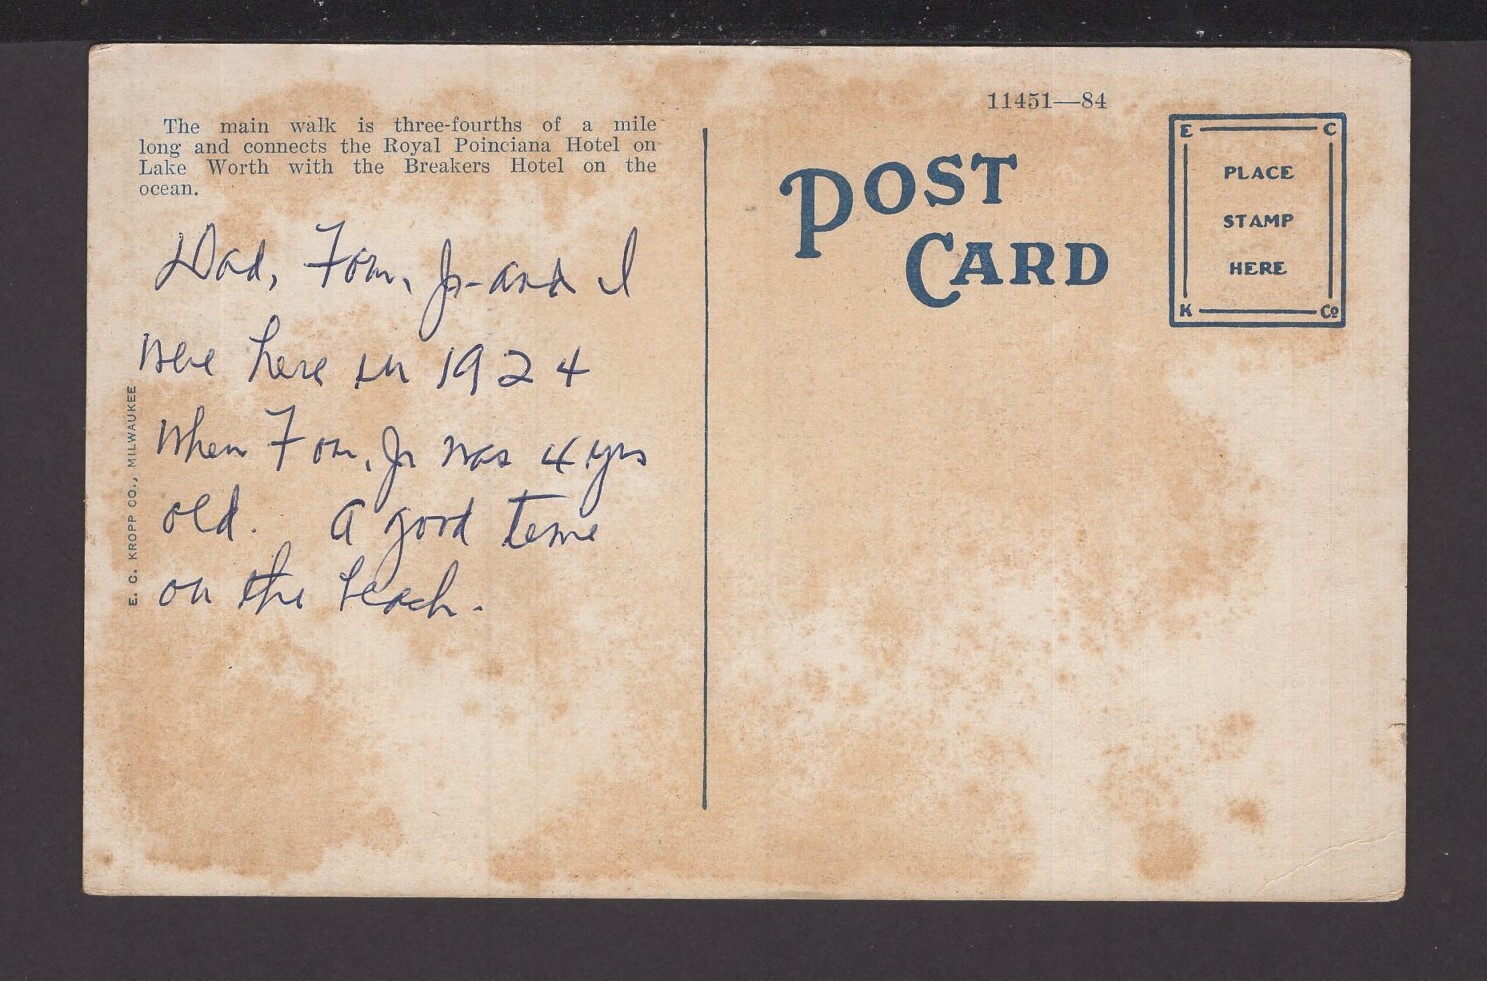 The main walk is three-fourths of a mile
long and connects the Royal Poinciana Hotel on
Lake Worth with the Breakers Hotel on the
ocean.
Dad, Tom, Jr-and I
were here in 1924
when Tom, Jr was 4 yrs
old. A good time
on the beach.
E. C. KROPP CO., MILWAUKEE
11451—84
POST
CARD
E C
PLACE
STAMP
HERE
K Co